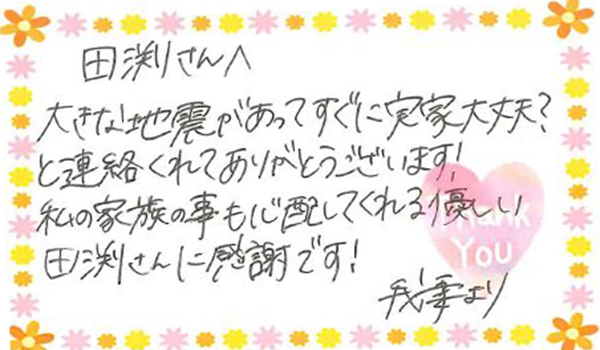 田渕さんへ
大きな地震があってすぐに実家大丈夫?
と連絡くれてありがとうございます!
私の家族の事も心配してくれる優しい
田渕さんに感謝です!
より
Thank
You